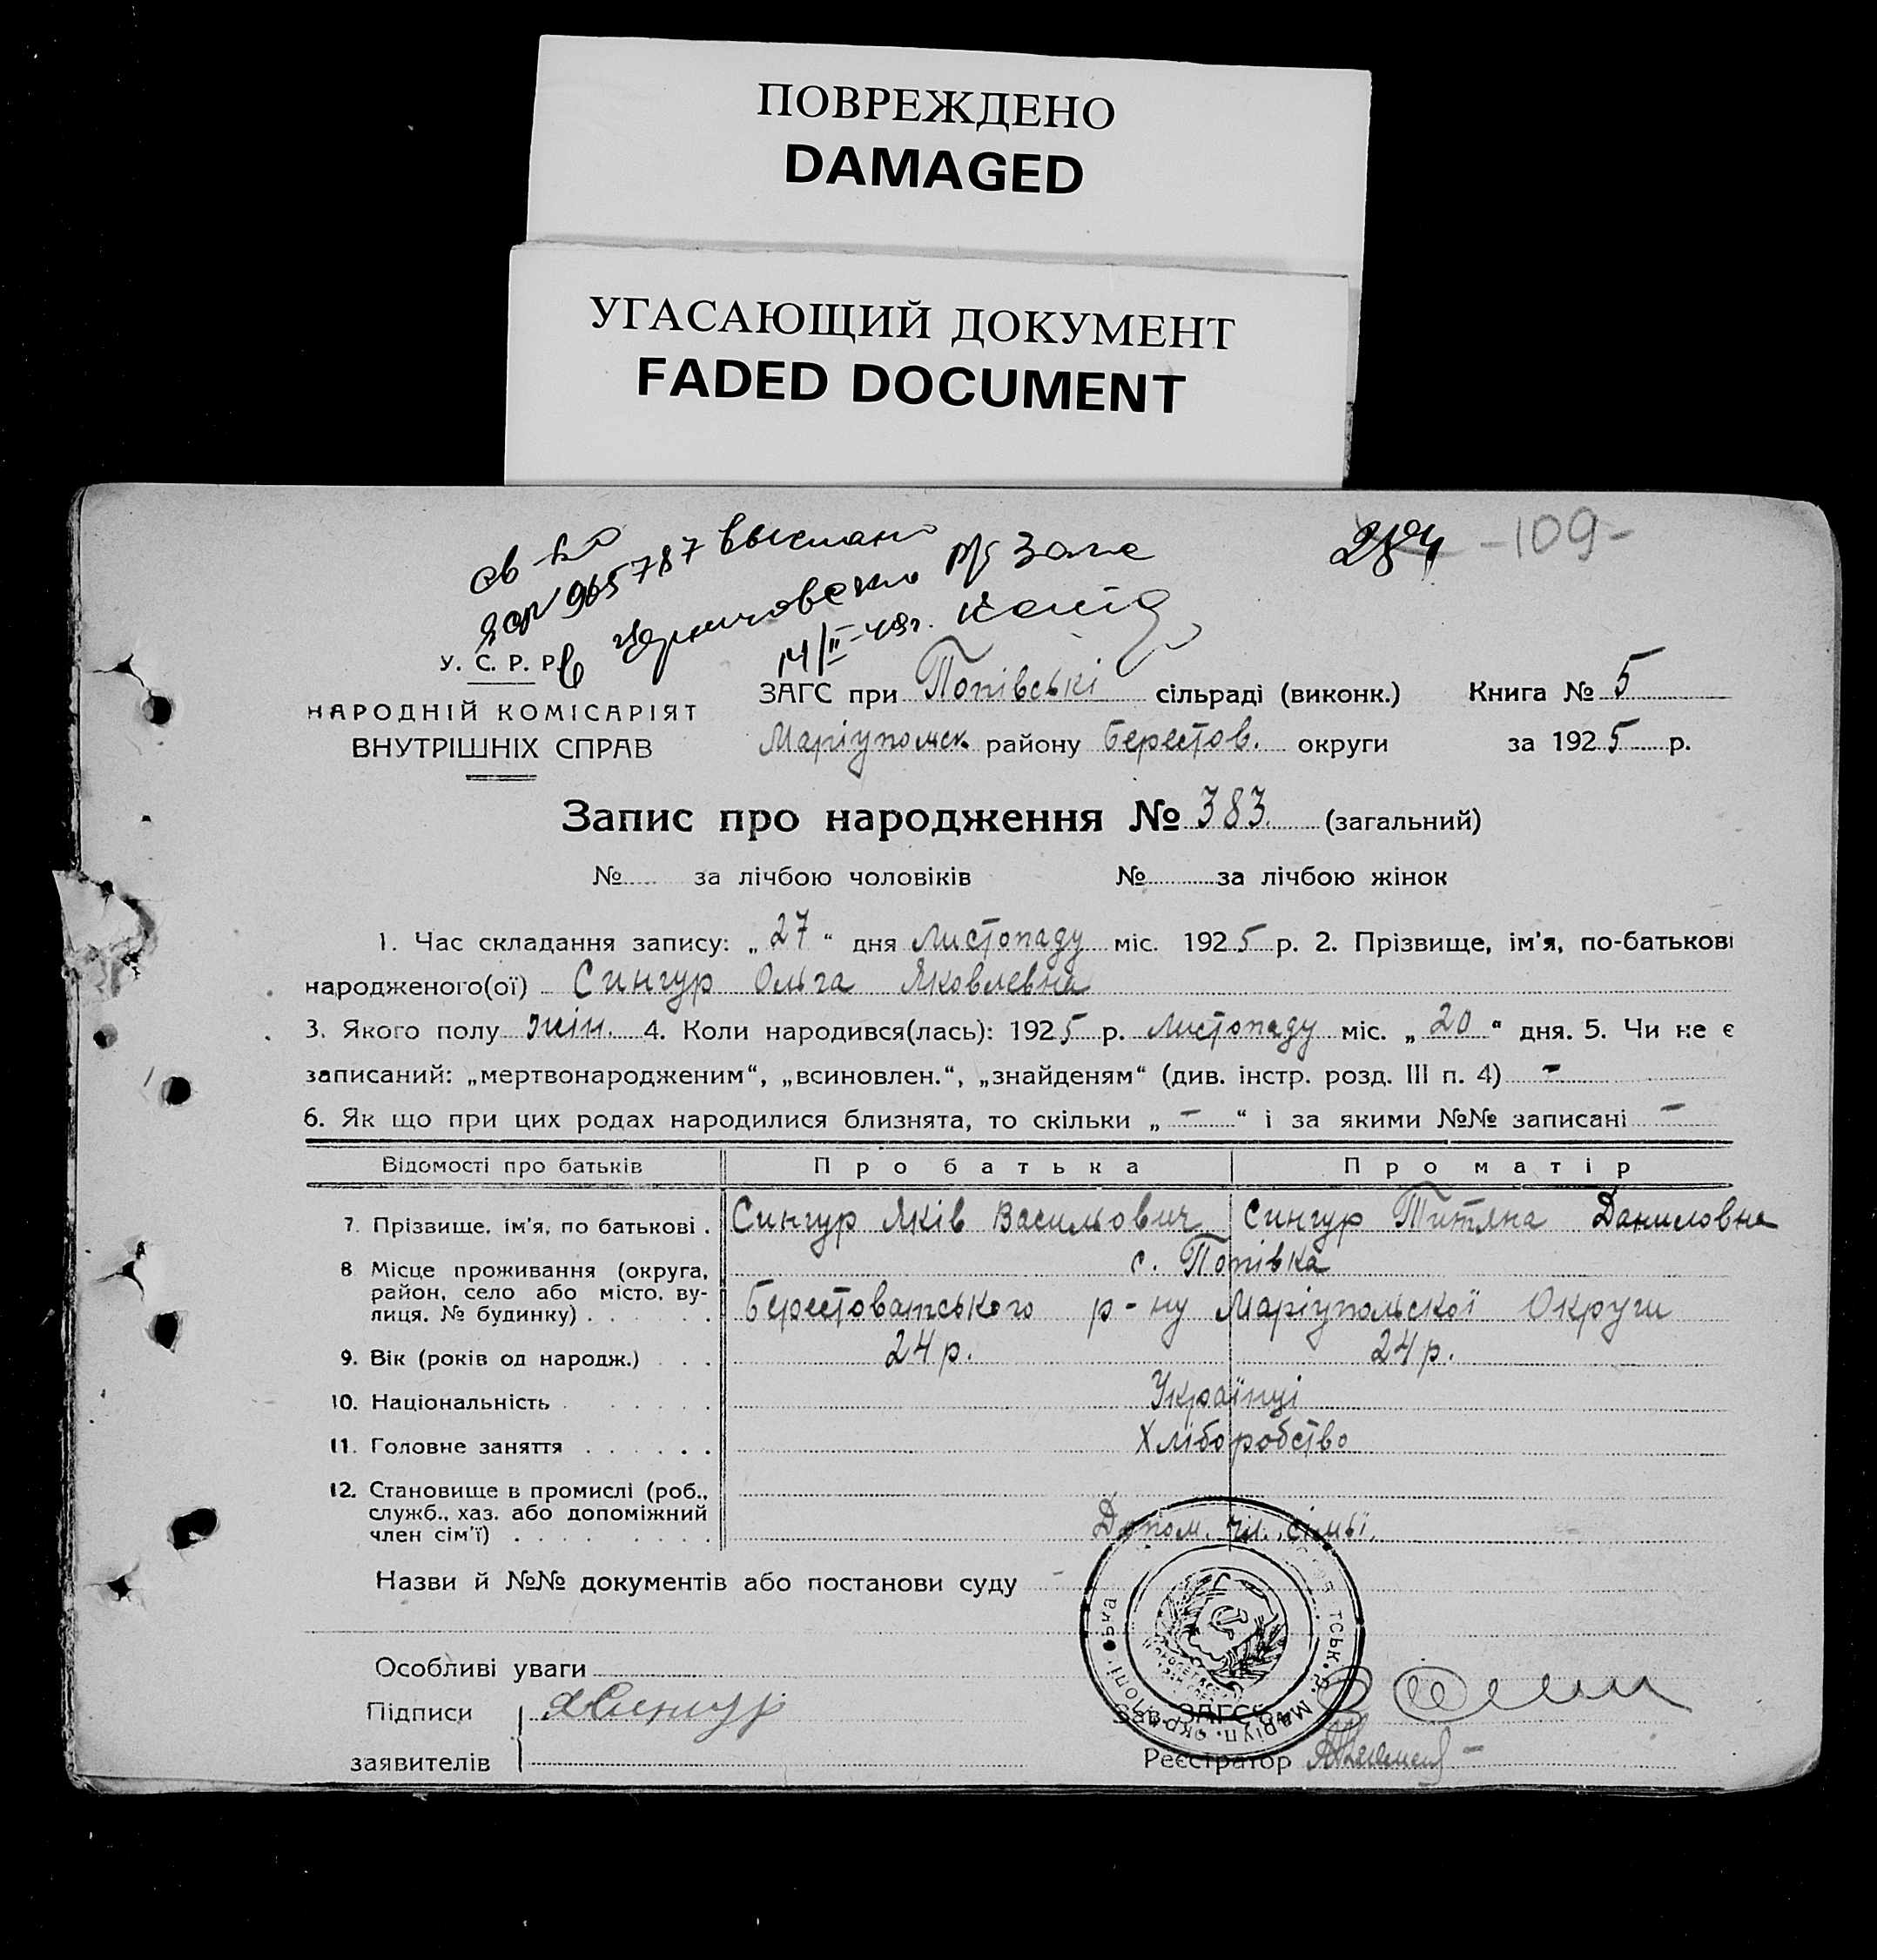 ПОВРЕЖДЕНО
DAMAGED
УГАСАЮЩИЙ ДОКУМЕНТ
FADED DOCUMENT
284 -109-
св-во
965787 выслано
в р/б Загс
14/II-49г.
У. С. Р. Р.
НАРОДНІЙ КОМІСАРІЯТ
ВНУТРІШНІХ СПРАВ
ЗАГС при Попівські сільраді (виконк.) Книга № 5
Маріупольск. району Берестов. округи за 1925 р.
Запис про народження № 383. (загальний)
№ за лічбою чоловіків № за лічбою жінок
1. Час складання запису: „27“ дня Листопаду міс. 1925 р. 2. Прізвище, ім'я, по-батькові
народженого(ої) Сингур Ольга Яковлевна
3. Якого полу жін. 4. Коли народився(лась): 1925 р. Листопаду міс. „20“ дня. 5. Чи не є
записаний: „мертвонародженим“, „всиновлен.“, „знайденям“ (див. інстр. розд. III п. 4) -
6. Як що при цих родах народилися близнята, то скільки „-“ і за якими №№ записані -
Відомості про батьків Про батька Про матір
7. Прізвище, ім'я, по батькові . Сингур Яків Васильович Сингур Титяна Даниловна
8 Місце проживання (округа, район, село або місто, вулиця, № будинку) . с. Попівка
Берестоватського р-ну Маріупольскої Округи
9. Вік (років од народж.) 24 р. 24 р.
10. Національність Українці
11. Головне заняття Хліборобство
12. Становище в промислі (роб., служб., хаз. або допоміжний член сім'ї) Допом. чл. сімьї.
Назви й №№ документів або постанови суду -
Особливі уваги
Підписи ЯСингур
заявителів
Зав. ЗАГС'ом
Реєстратор